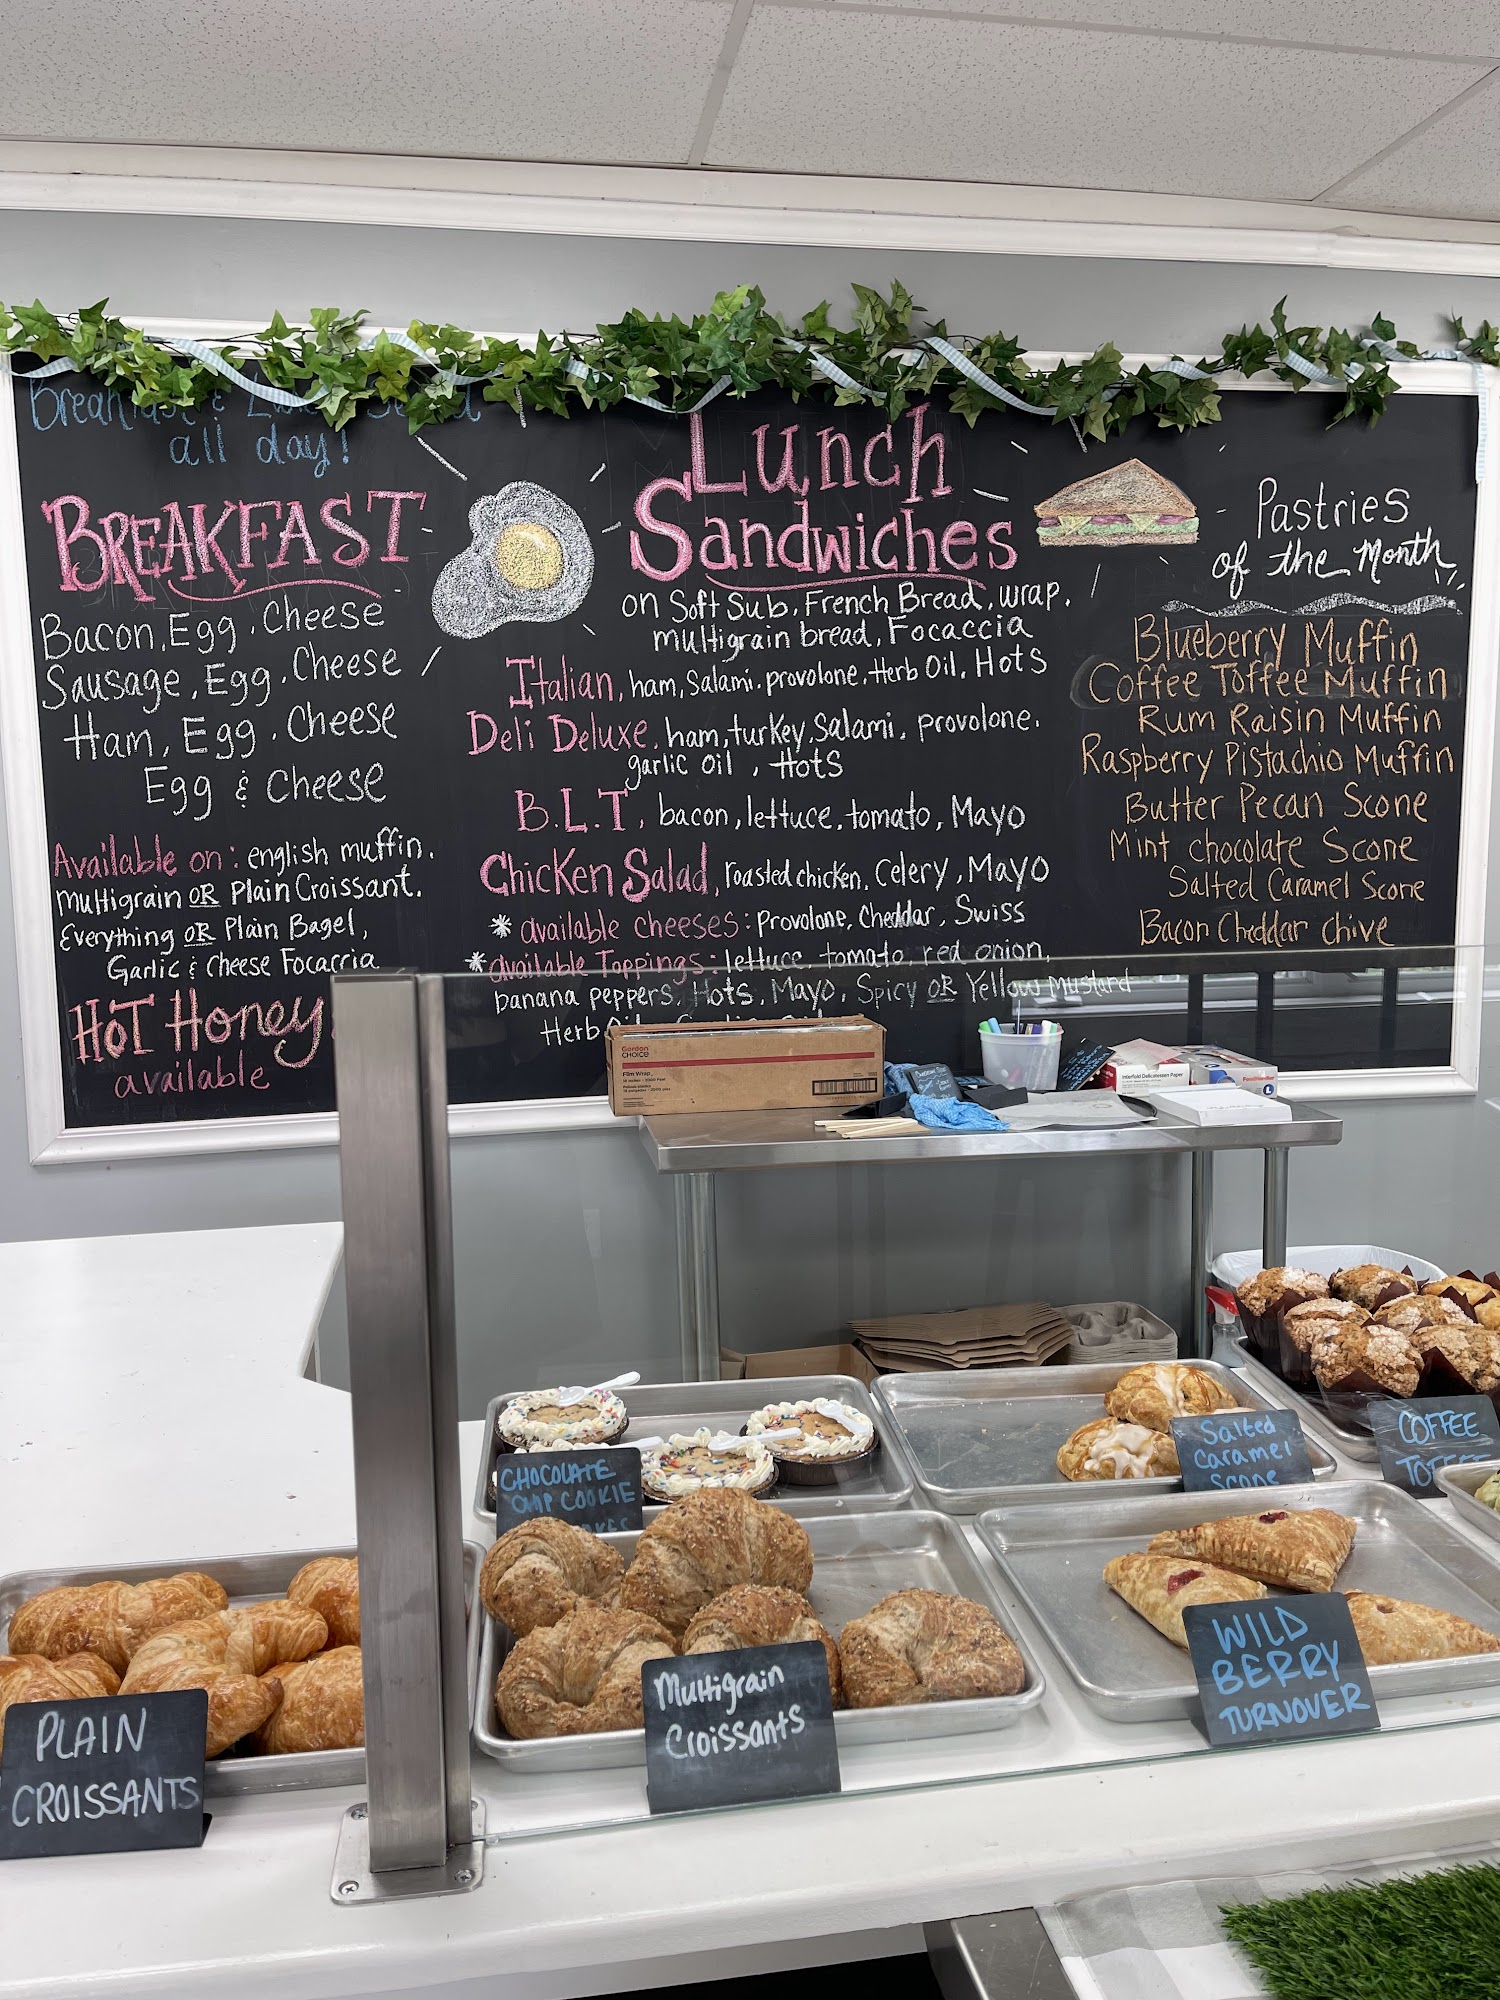 Breakfast & Lunch Served
all day!
BREAKFAST
Bacon, Egg, Cheese
Sausage, Egg, Cheese
Ham, Egg, Cheese
Egg & Cheese
Available on: english muffin,
multigrain OR Plain Croissant,
Everything OR Plain Bagel,
Garlic & Cheese Focaccia
HOT Honey
available
Lunch
Sandwiches
on Soft Sub, French Bread, wrap,
multigrain bread, Focaccia
Italian, ham, Salami, provolone, Herb Oil, Hots
Deli Deluxe, ham, turkey, Salami, provolone,
garlic oil, Hots
B.L.T, bacon, lettuce, tomato, Mayo
Chicken Salad, roasted chicken, Celery, Mayo
* available cheeses: Provolone, Cheddar, Swiss
* available Toppings: lettuce, tomato, red onion,
banana peppers, Hots, Mayo, Spicy OR Yellow Mustard
Herb
Pastries
of the Month
Blueberry Muffin
Coffee Toffee Muffin
Rum Raisin Muffin
Raspberry Pistachio Muffin
Butter Pecan Scone
Mint chocolate Scone
Salted Caramel Scone
Bacon Cheddar chive
Gordon
CHOICE
Film Wrap
Interfold Delicatessen Paper
CHOCOLATE
CHIP COOKIE
Salted
Caramel
Scone
COFFEE
TOFFEE
PLAIN
CROISSANTS
Multigrain
Croissants
WILD
BERRY
TURNOVER